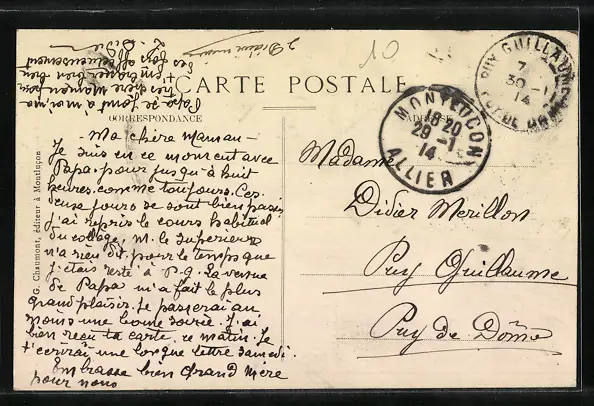 CARTE POSTALE
CORRESPONDANCE
ADRESSE
G. Chaumont, éditeur à Montluçon
10
MONTLUCON
18 20
29 -1
14
ALLIER
PUY GUILLAUME
7
30 -1
14
PUY DE DOME
Ma chère maman -
Je suis en ce moment avec
Papa pour jusqu'à huit
heures comme toujours. Ces
deux jours se sont bien passés
j'ai repris le cours habituel
du collège, M. le Supérieur
n'a rien dit pour le temps que
j'étais resté à P-G. La venue
de Papa m'a fait le plus
grand plaisir. Je passerai au
moins une bonne soirée. J'ai
bien reçu ta carte ce matin. Je
t'écrirai une longue lettre samedi.
Embrasse bien Grand Mère
pour nous
Papa se joint à moi ma
très chère Maman pour
t'embrasser bien
des fois affectueusement
Madame
Didier Merillon
Puy Guillaume
Puy de Dôme